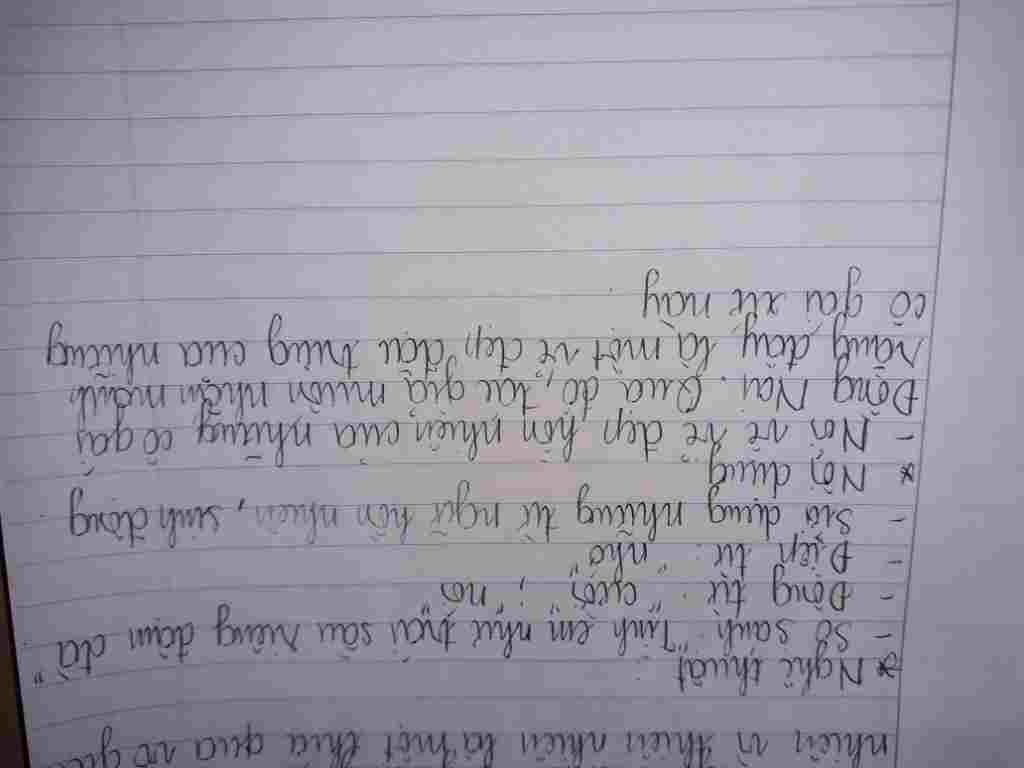 nhiên vì thiên nhiên là một thứ quà vô giá
* Nghệ thuật :
- So sánh: "Tình em như trái sầu riêng đậm đà"
- Động từ : "cười", "nói"
- Điệp từ : "nhớ"
- Sử dụng những từ ngữ hồn nhiên, sinh động
* Nội dung
- Nói về vẻ đẹp hồn nhiên của những cô gái
Đồng Nai. Qua đó, tác giả muốn nhấn mạnh
rằng đây là một vẻ đẹp đặc trưng của những
cô gái xứ này.